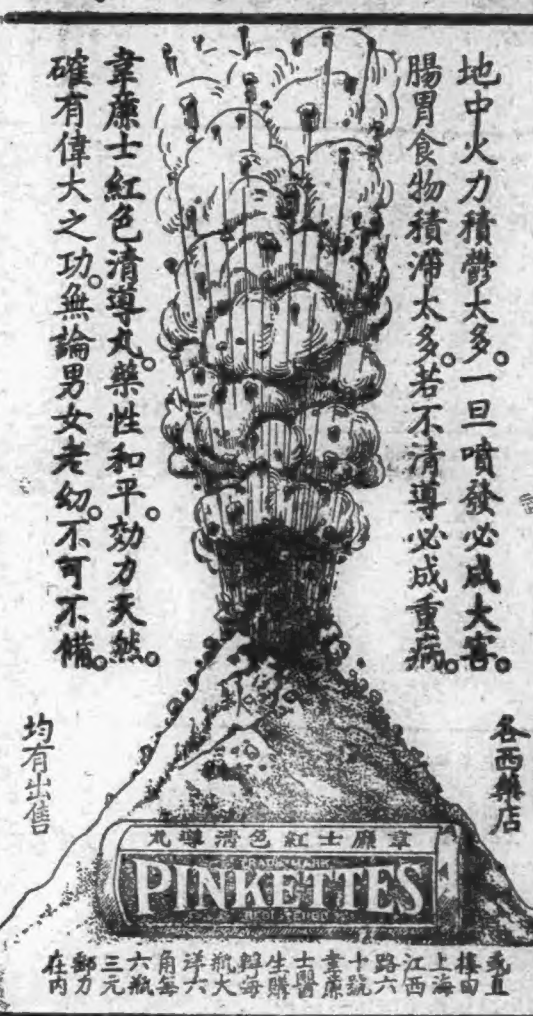 地中火力積鬱太多。一旦噴發必成大害。
腸胃食物積滯太多。若不清導必成重病。
韋廉士紅色清導丸。藥性和平。効力天然。
確有偉大之功。無論男女老幼。不可不備。
各西藥店
均有出售
韋廉士紅色清導丸
TRADE MARK
PINKETTES
REGISTERED
直
上海
江西
路六
十號
韋廉
士醫
生購
每
瓶大
洋六
角每
六瓶
三元
郵力
在內